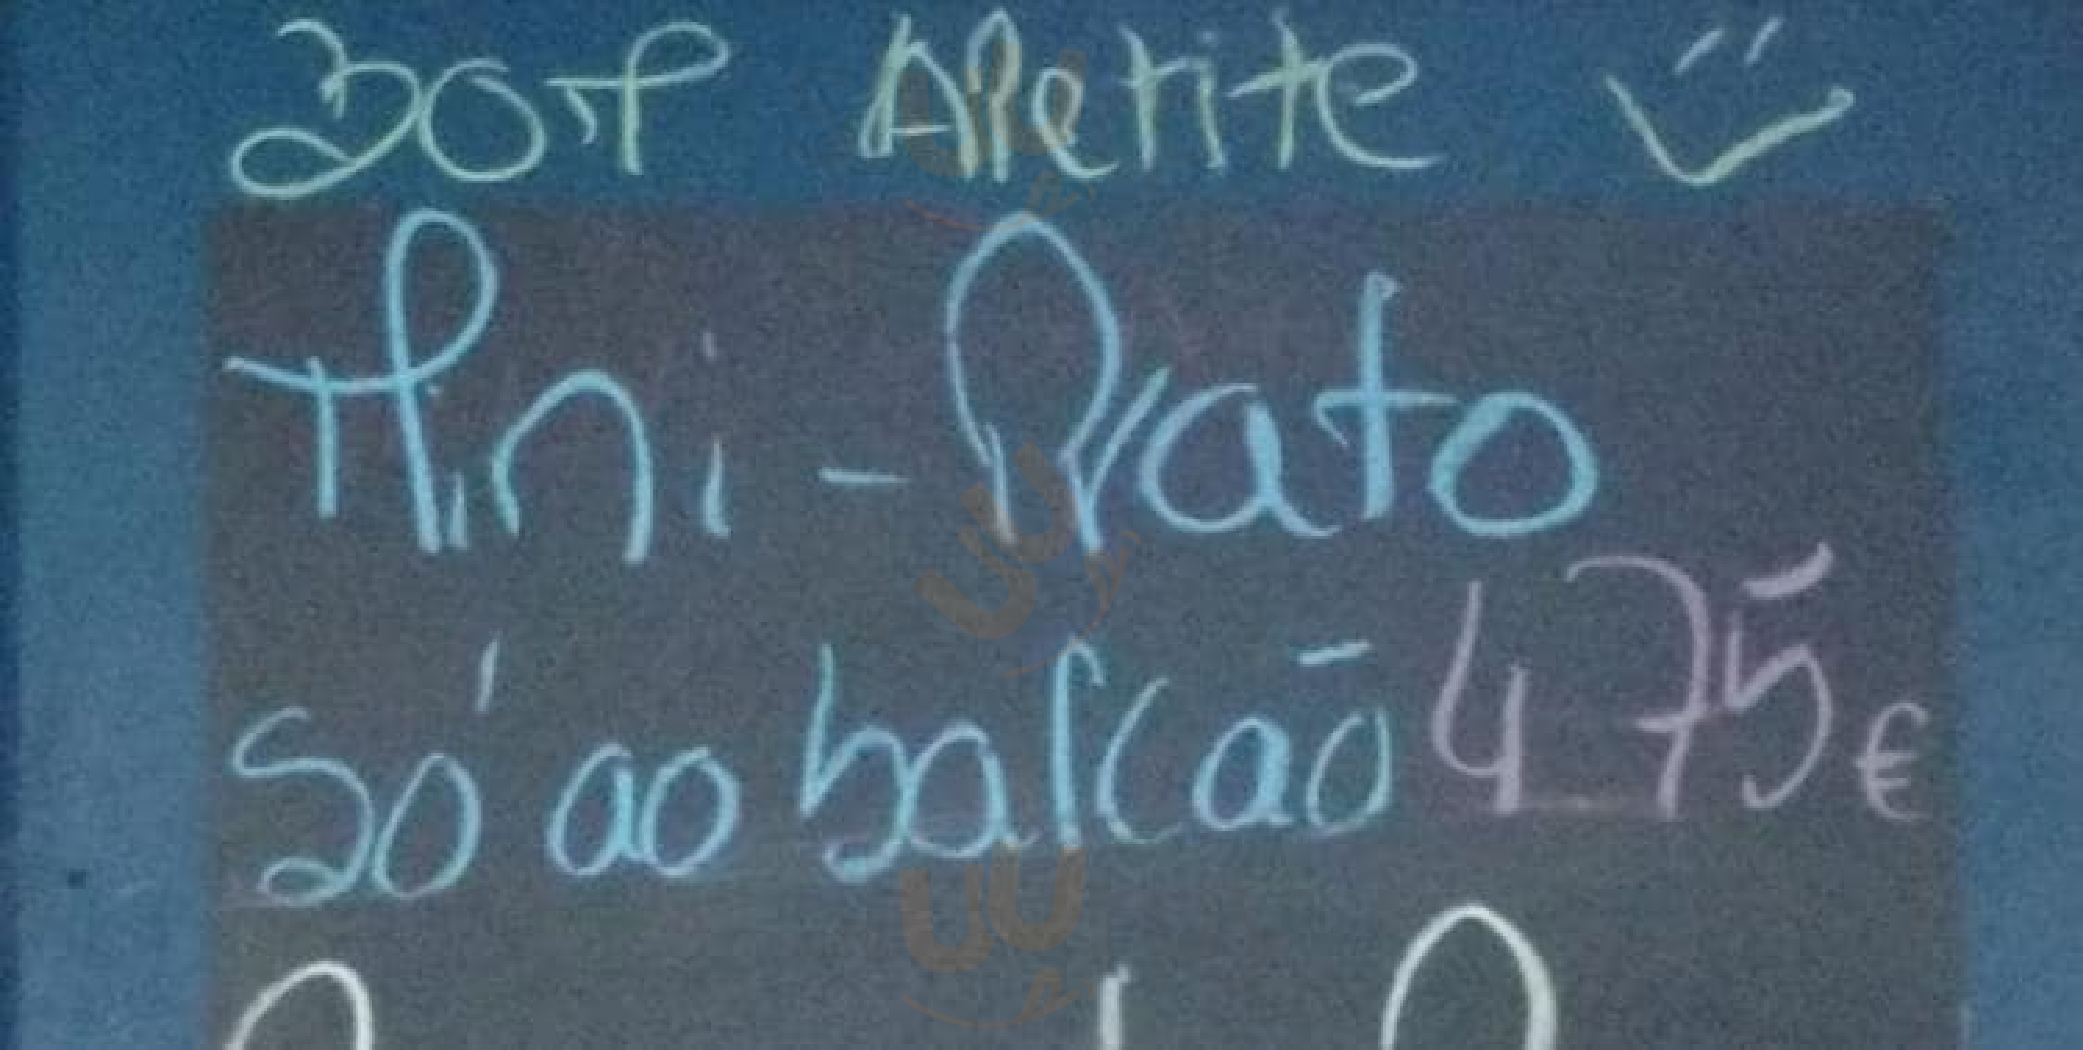 Bom Apetite
Mini-Prato
Só ao balcão 4,75€